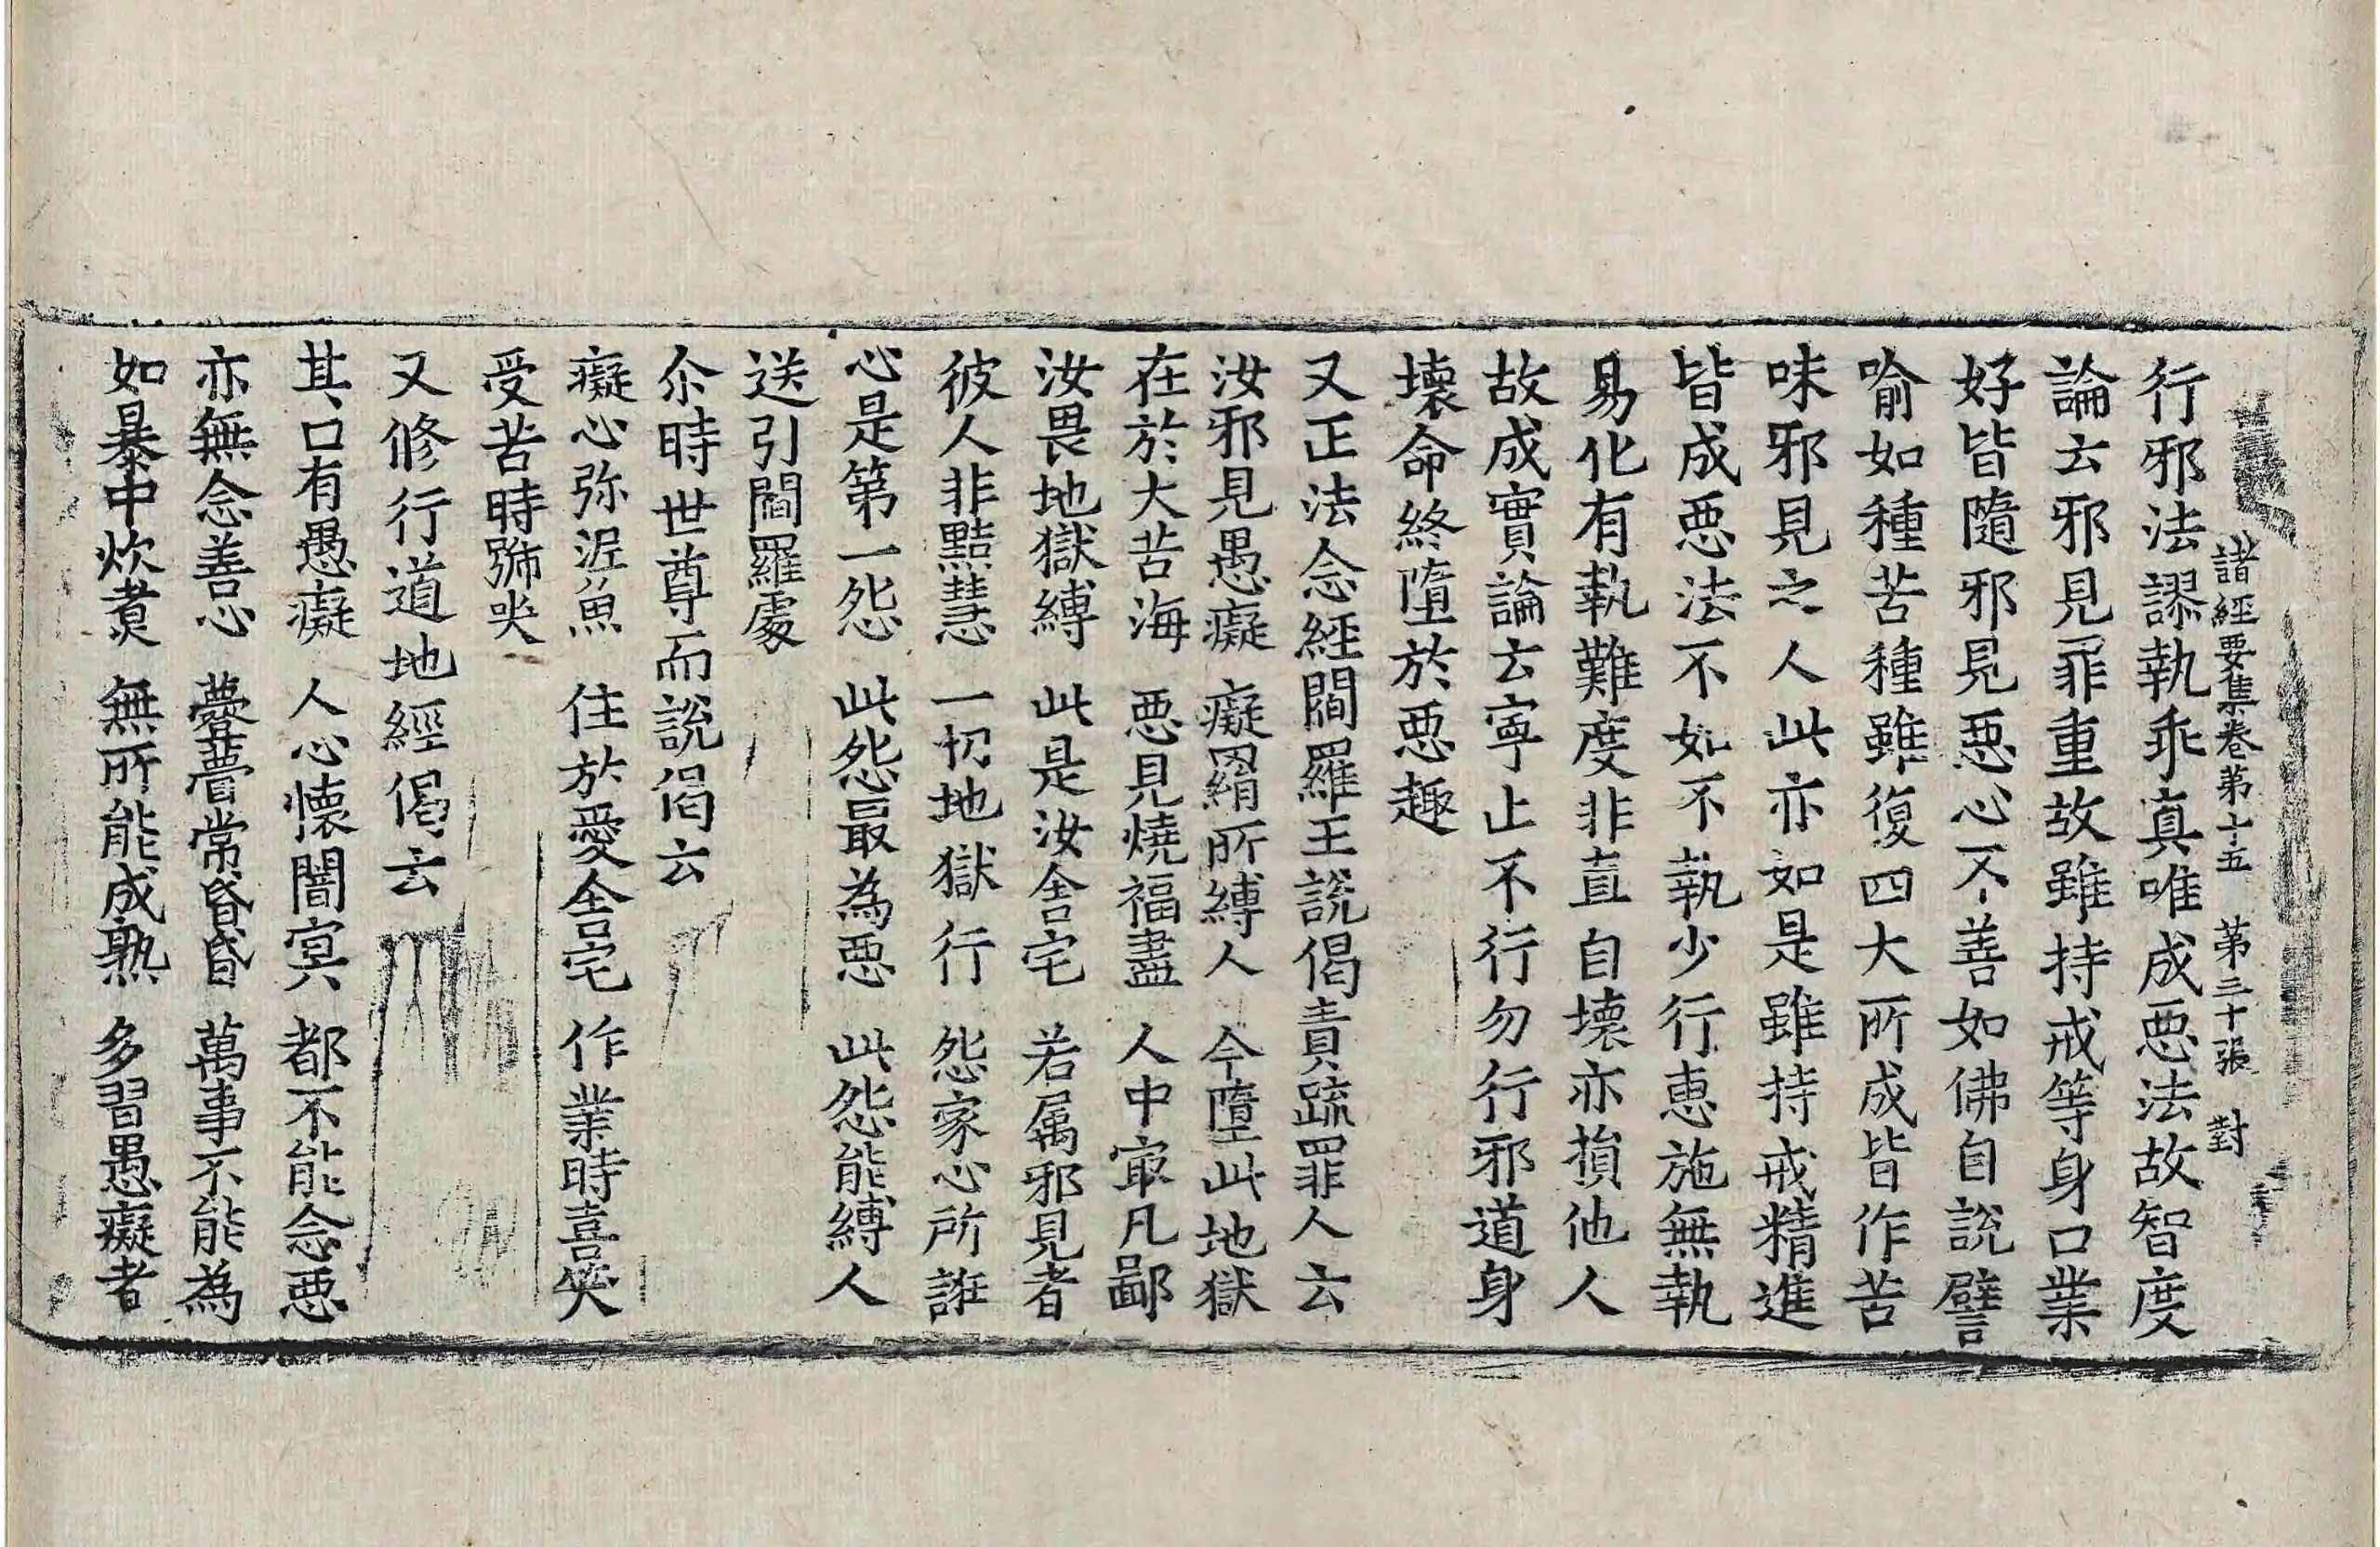 諸經要集卷第十五　第三十張　對
行邪法謬執乖真唯成惡法故智度
論云邪見罪重故雖持戒等身口業
好皆隨邪見惡心不善如佛自說譬
喻如種苦種雖復四大所成皆作苦
味邪見之人此亦如是雖持戒精進
皆成惡法不如不執少行惠施無執
易化有執難度非直自壞亦損他人
故成實論云寧止不行勿行邪道身
壞命終墮於惡趣
又正法念經閻羅王說偈責疏罪人云
汝邪見愚癡　癡羂所縛人　今墮此地獄
在於大苦海　惡見燒福盡　人中冣凡鄙
汝畏地獄縛　此是汝舍宅　若属邪見者
彼人非黠慧　一切地獄行　怨家心所誑
心是第一怨　此怨最為惡　此怨能縛人
送引閻羅處
尒時世尊而說偈云
癡心弥泥魚　住於愛舍宅　作業時喜笑
受苦時號哭
又修行道地經偈云
其口有愚癡　人心懷闇冥　都不能念惡
亦無念善心　薨薨常昏昏　萬事不能為
如暴中炊煮　無所能成熟　多習愚癡者